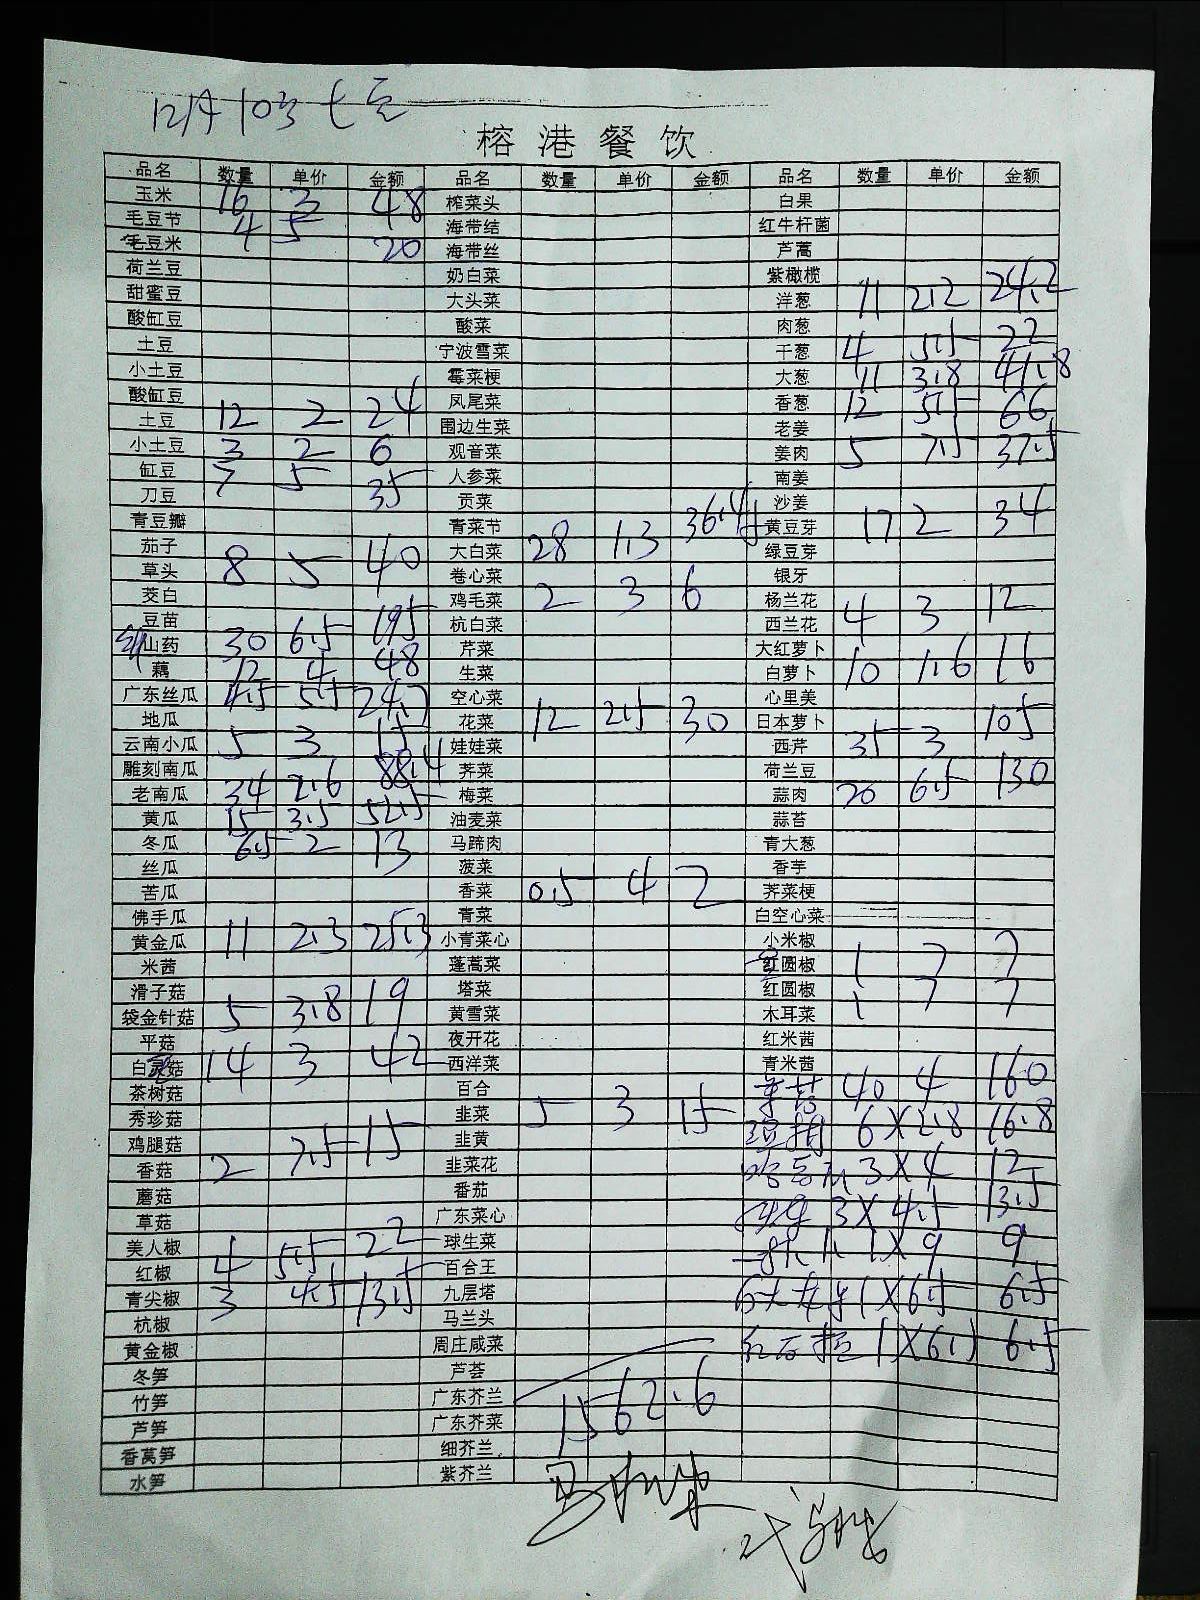 12月10号
榕港餐饮
品名 数量 单价 金额 品名 数量 单价 金额 品名 数量 单价 金额
玉米 16 3 48 榨菜头 白果
毛豆节 4 5 海带结 红牛杆菌
毛豆米 20 海带丝 芦蒿
荷兰豆 奶白菜 紫橄榄
甜蜜豆 大头菜 洋葱 11 2.2 24.2
酸缸豆 酸菜 肉葱
土豆 宁波雪菜 干葱 4 5.5 22
小土豆 霉菜梗 大葱 11 3.8 41.8
酸缸豆 凤尾菜 香葱 12 5.5 66
土豆 12 2 24 围边生菜 老姜
小土豆 3 2 6 观音菜 姜肉 5 7.5 37.5
缸豆 7 5 35 人参菜 南姜
刀豆 贡菜 沙姜
青豆瓣 青菜节 黄豆芽 17 2 34
茄子 大白菜 28 1.3 36.4 绿豆芽
草头 8 5 40 卷心菜 银牙
茭白 鸡毛菜 2 3 6 杨兰花
豆苗 杭白菜 西兰花 4 3 12
山药 30 6.5 195 芹菜 大红萝卜
藕 12 4 48 生菜 白萝卜 10 1.6 16
广东丝瓜 4.5 5.5 24.7 空心菜 心里美
地瓜 花菜 12 2.5 30 日本萝卜
云南小瓜 5 3 15 娃娃菜 西芹 35 3 105
雕刻南瓜 荠菜 荷兰豆
老南瓜 34 2.6 88.4 梅菜 蒜肉 20 6.5 130
黄瓜 15 3.5 52.5 油麦菜 蒜苔
冬瓜 6.5 2 13 马蹄肉 青大葱
丝瓜 菠菜 香芋
苦瓜 香菜 0.5 4 2 荠菜梗
佛手瓜 青菜 白空心菜
黄金瓜 11 2.3 25.3 小青菜心 小米椒
米茜 蓬蒿菜 圆椒 1 7 7
滑子菇 塔菜 红圆椒 1 7 7
袋金针菇 5 3.8 19 黄雪菜 木耳菜
平菇 夜开花 红米茜
白灵菇 14 3 42 西洋菜 青米茜
茶树菇 百合 40 4 160
秀珍菇 韭菜 5 3 15 6×2.8 16.8
鸡腿菇 韭黄 3×4 12
香菇 2 7.5 15 韭菜花 3×4.5 13.5
蘑菇 番茄 1×9 9
草菇 广东菜心 1×6.5 6.5
美人椒 4 5.5 22 球生菜 1×6.5 6.5
红椒 百合王
青尖椒 3 4.5 13.5 九层塔
杭椒 马兰头
黄金椒 周庄咸菜
冬笋 芦荟
竹笋 广东芥兰 1562.6
芦笋 广东芥菜
香莴笋 细芥兰
水笋 紫芥兰